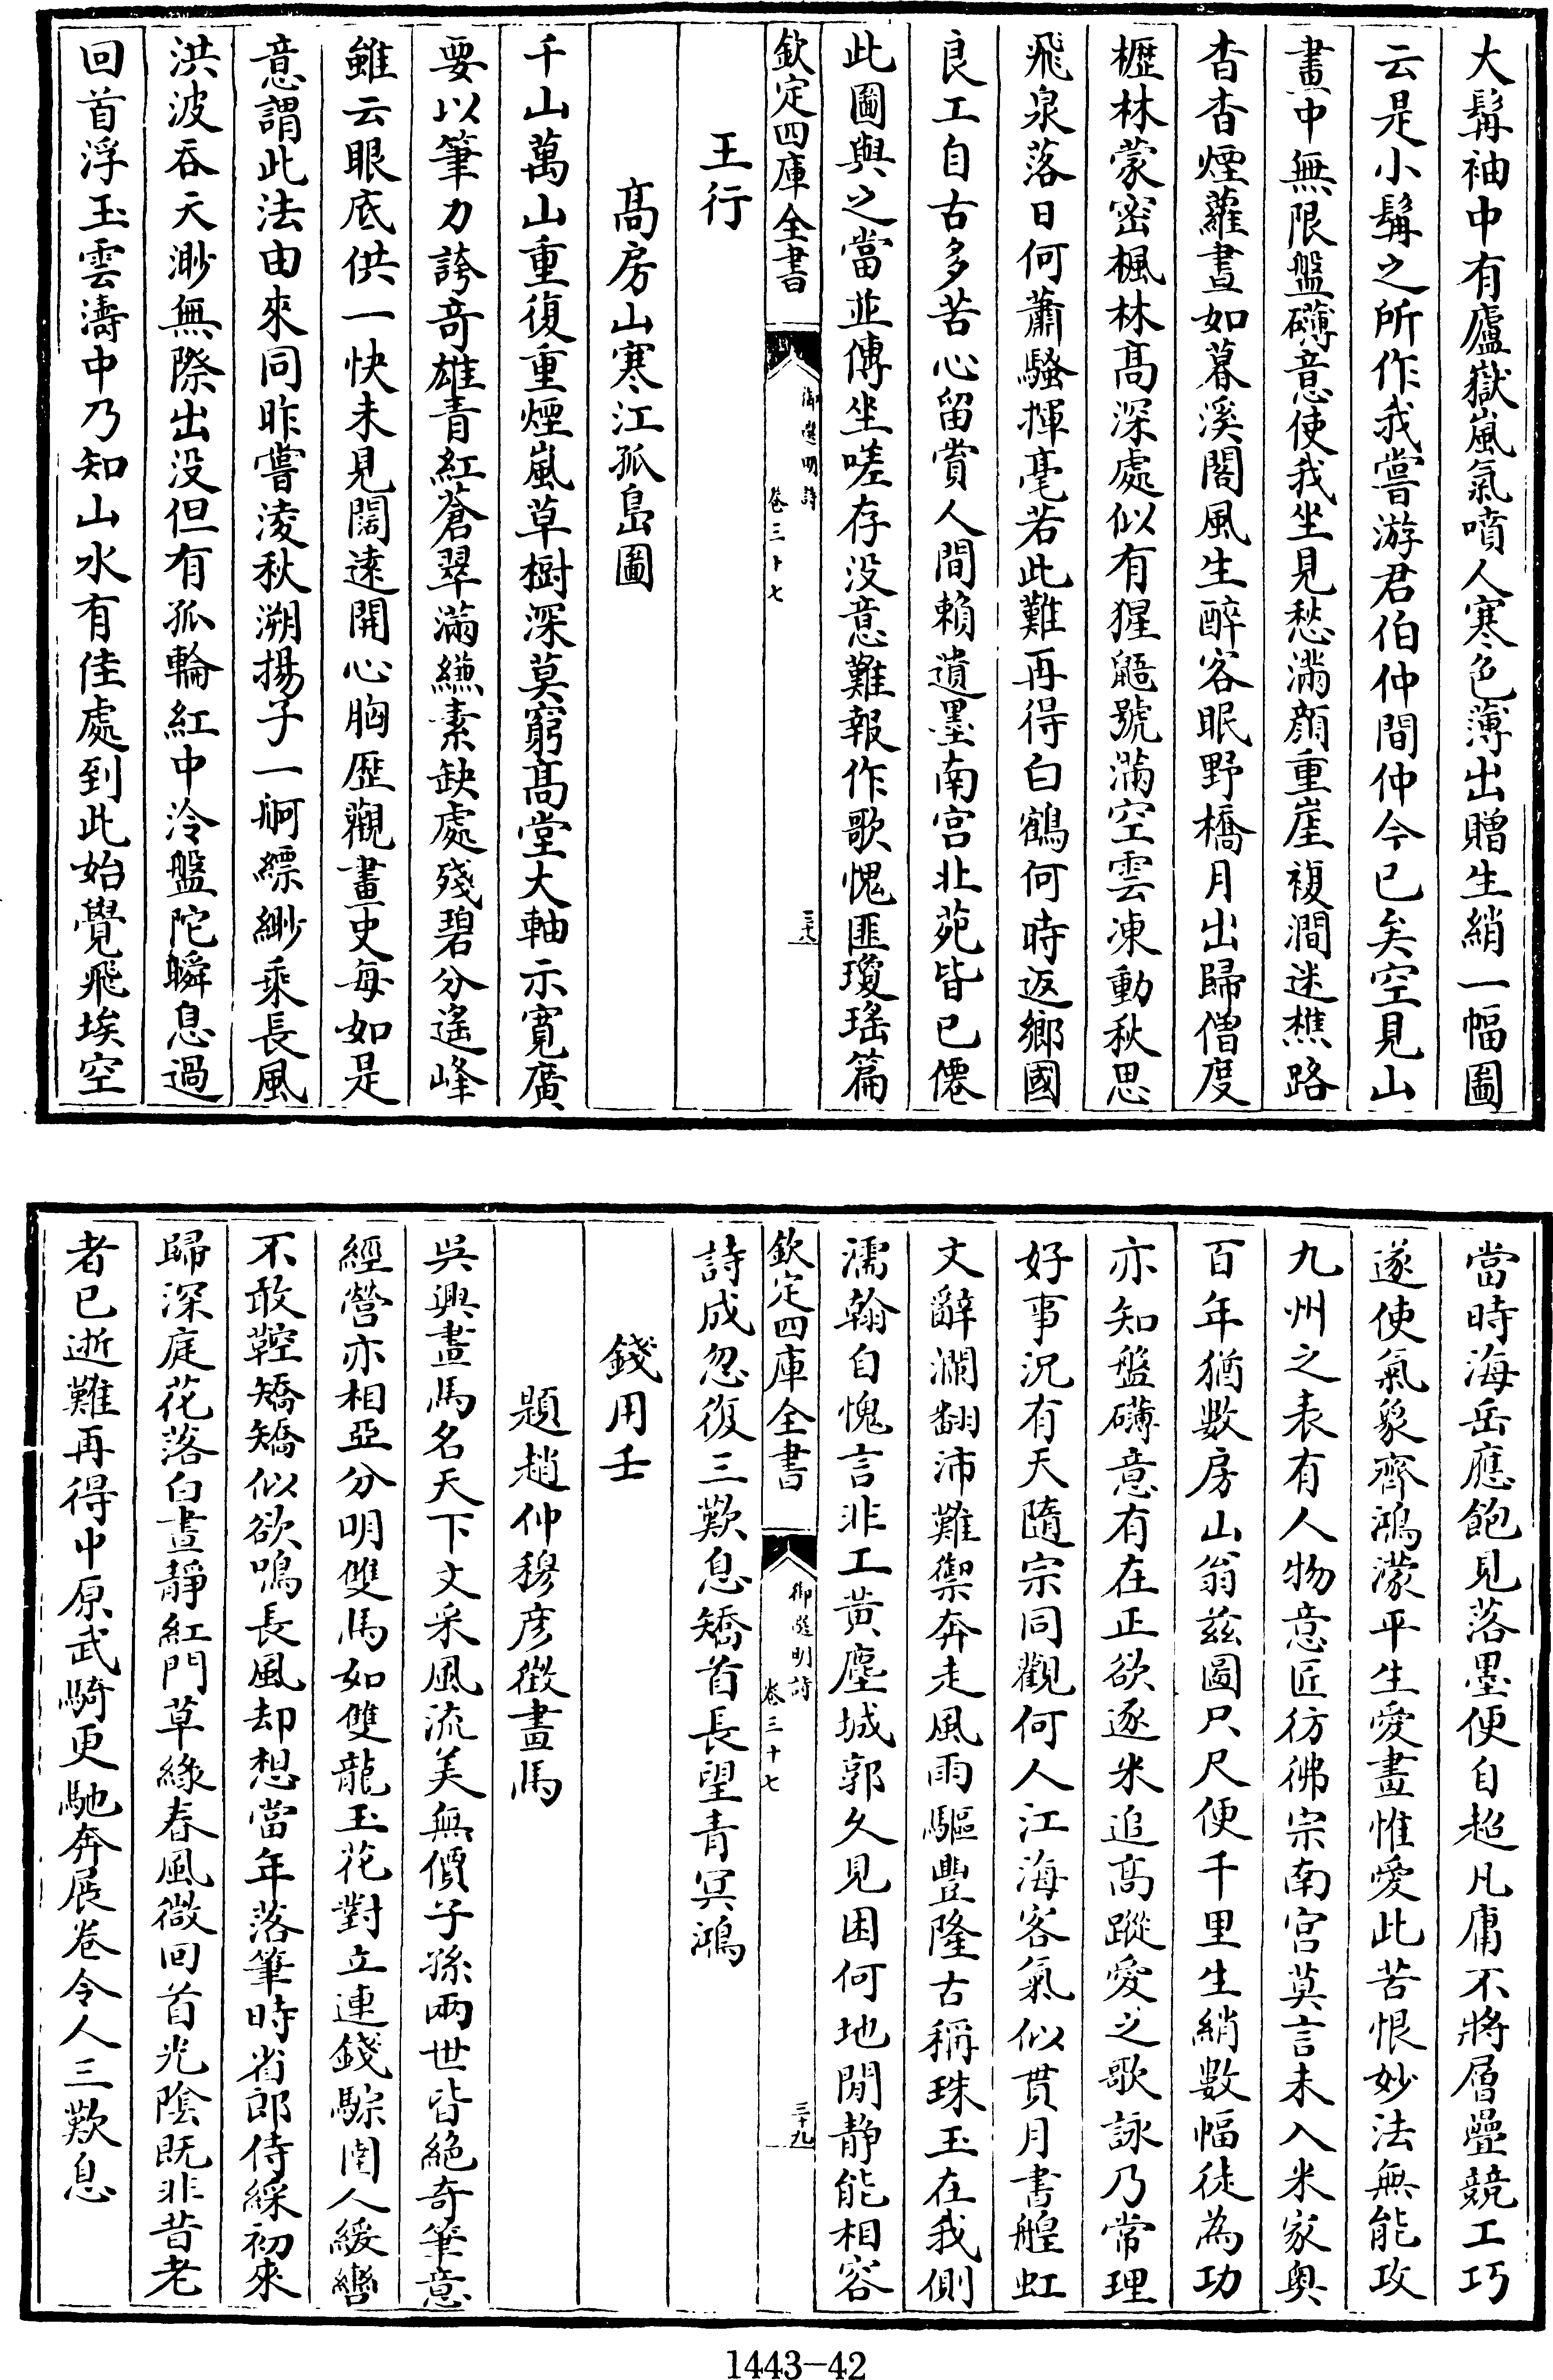 大髯袖中有廬嶽嵐氣噴人寒色薄出贈生綃一幅圖
云是小髯之所作我嘗游君伯仲間仲今已矣空見山
畫中無限盤礴意使我坐見愁滿顔重崖複澗迷樵路
杳杳煙蘿晝如暮溪閣風生醉客眠野橋月出歸僧度
櫪林蒙密楓林髙深處似有猩鼯號滿空雲凍動秋思
飛泉落日何蕭騷揮毫若此難再得白鶴何時返鄉國
良工自古多苦心留賞人間賴遺墨南宫北苑皆已僊
此圖與之當並傳坐嗟存没意難報作歌愧匪瓊瑤篇
欽定四庫全書
御選明詩
卷三十七
三十八
王行
髙房山寒江孤島圖
千山萬山重復重煙嵐草樹深莫窮髙堂大軸示寛廣
要以筆力誇奇雄青紅蒼翠滿縑素缺處殘碧分遙峰
雖云眼底供一快未見闊逺開心胸歷觀畫史每如是
意謂此法由來同昨嘗淩秋溯揚子一舸縹緲乘長風
洪波吞天渺無際出没但有孤輪紅中泠盤陀瞬息過
回首浮玉雲濤中乃知山水有佳處到此始覺飛埃空
當時海岳應飽見落墨便自超凡庸不將層疊競工巧
遂使氣象齊鴻濛平生愛畫惟愛此苦恨妙法無能攻
九州之表有人物意匠彷彿宗南宫莫言未入米家奥
百年猶數房山翁兹圖只尺便千里生綃數幅徒為功
亦知盤礴意有在正欲逐米追髙蹤愛之歌詠乃常理
好事況有天隨宗同觀何人江海客氣似貫月書艎虹
文辭瀾翻沛難禦奔走風雨驅豐隆古稱珠玉在我側
濡翰自愧言非工黄塵城郭久見困何地閒静能相容
欽定四庫全書
御選明詩
卷三十七
三十九
詩成忽復三歎息矯首長望青冥鴻
錢用壬
題趙仲穆彦徴畫馬
吳興畫馬名天下文采風流美無價子孫兩世皆絶奇筆意
經營亦相亞分明雙馬如雙龍玉花對立連錢騌圉人緩轡
不敢鞚矯矯似欲鳴長風却想當年落筆時省郎侍綵初來
歸深庭花落白晝靜紅門草緣春風微回首光陰既非昔老
者已逝難再得中原武騎更馳奔展卷令人三歎息
1443-42